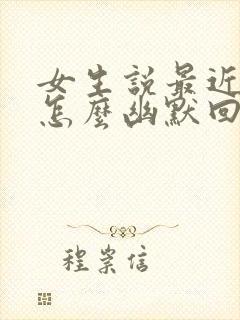 女生説最近
怎麼幽默回
程崇信